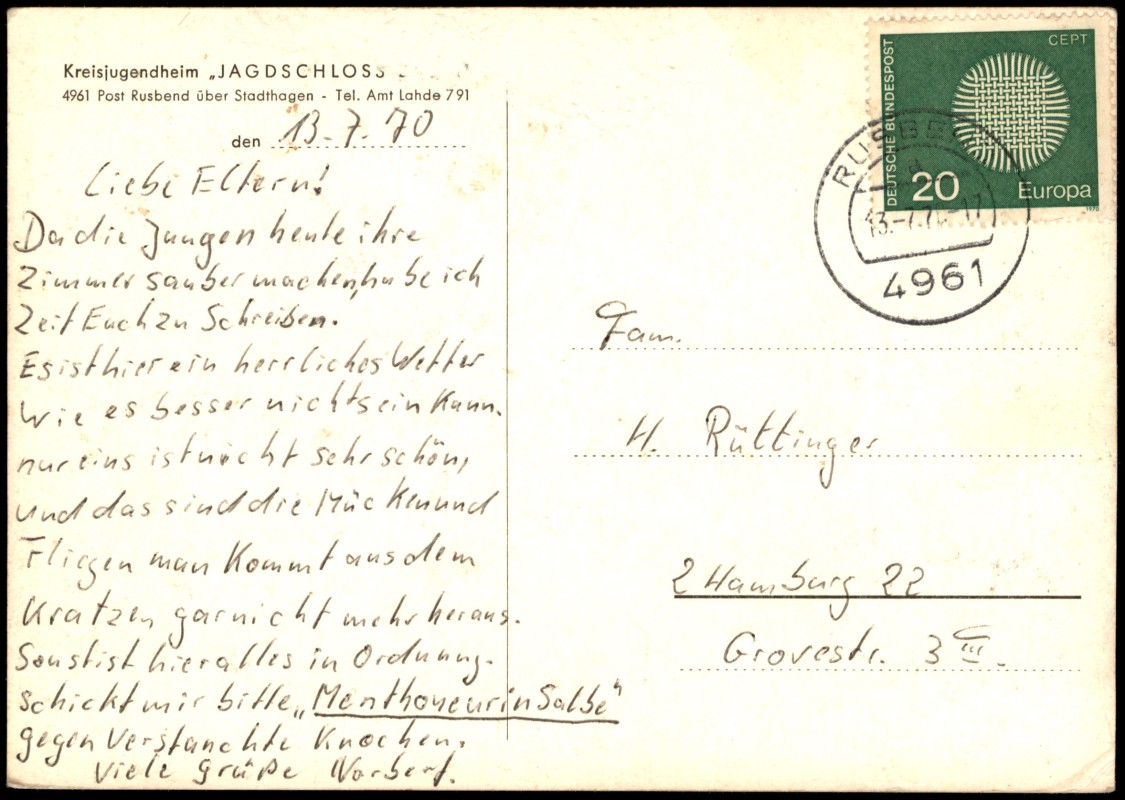 Kreisjugendheim „JAGDSCHLOSS
4961 Post Rusbend über Stadthagen - Tel. Amt Lahde 791
den 13.7.70
Liebe Eltern!
Da die Jungen heute ihre
Zimmer saubermachen, habe ich
Zeit Euch zu Schreiben.
Es ist hier ein herrliches Wetter
wie es besser nicht sein kann.
nur eins ist nicht sehr schön,
und das sind die Mücken und
Fliegen man kommt aus dem
Kratzen garnicht mehr heraus.
Sonst ist hier alles in Ordnung.
schickt mir bitte „Menthoneurin Salbe"
gegen Verstauchte Knochen.
Viele Grüße Norbert.
CEPT
DEUTSCHE BUNDESPOST
20
Europa
1970
RUSBEND
a
13.-7.70-17
4961
Fam.
H. Rüttinger
2 Hamburg 22
Grovestr. 3 III.